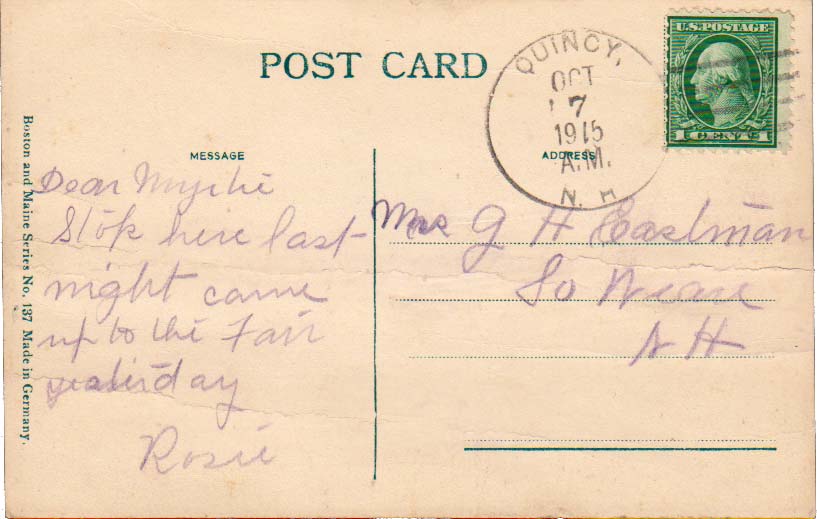 POST CARD
QUINCY,
OCT
7
1915
A.M.
N. H
U.S. POSTAGE
1 CENT 1
MESSAGE
ADDRESS
Boston and Maine Series No. 137 Made in Germany.
Dear
Stop here last
night came
up to the Fair
yesterday
Rosie
Mrs G H Eastman
So Weare
N H